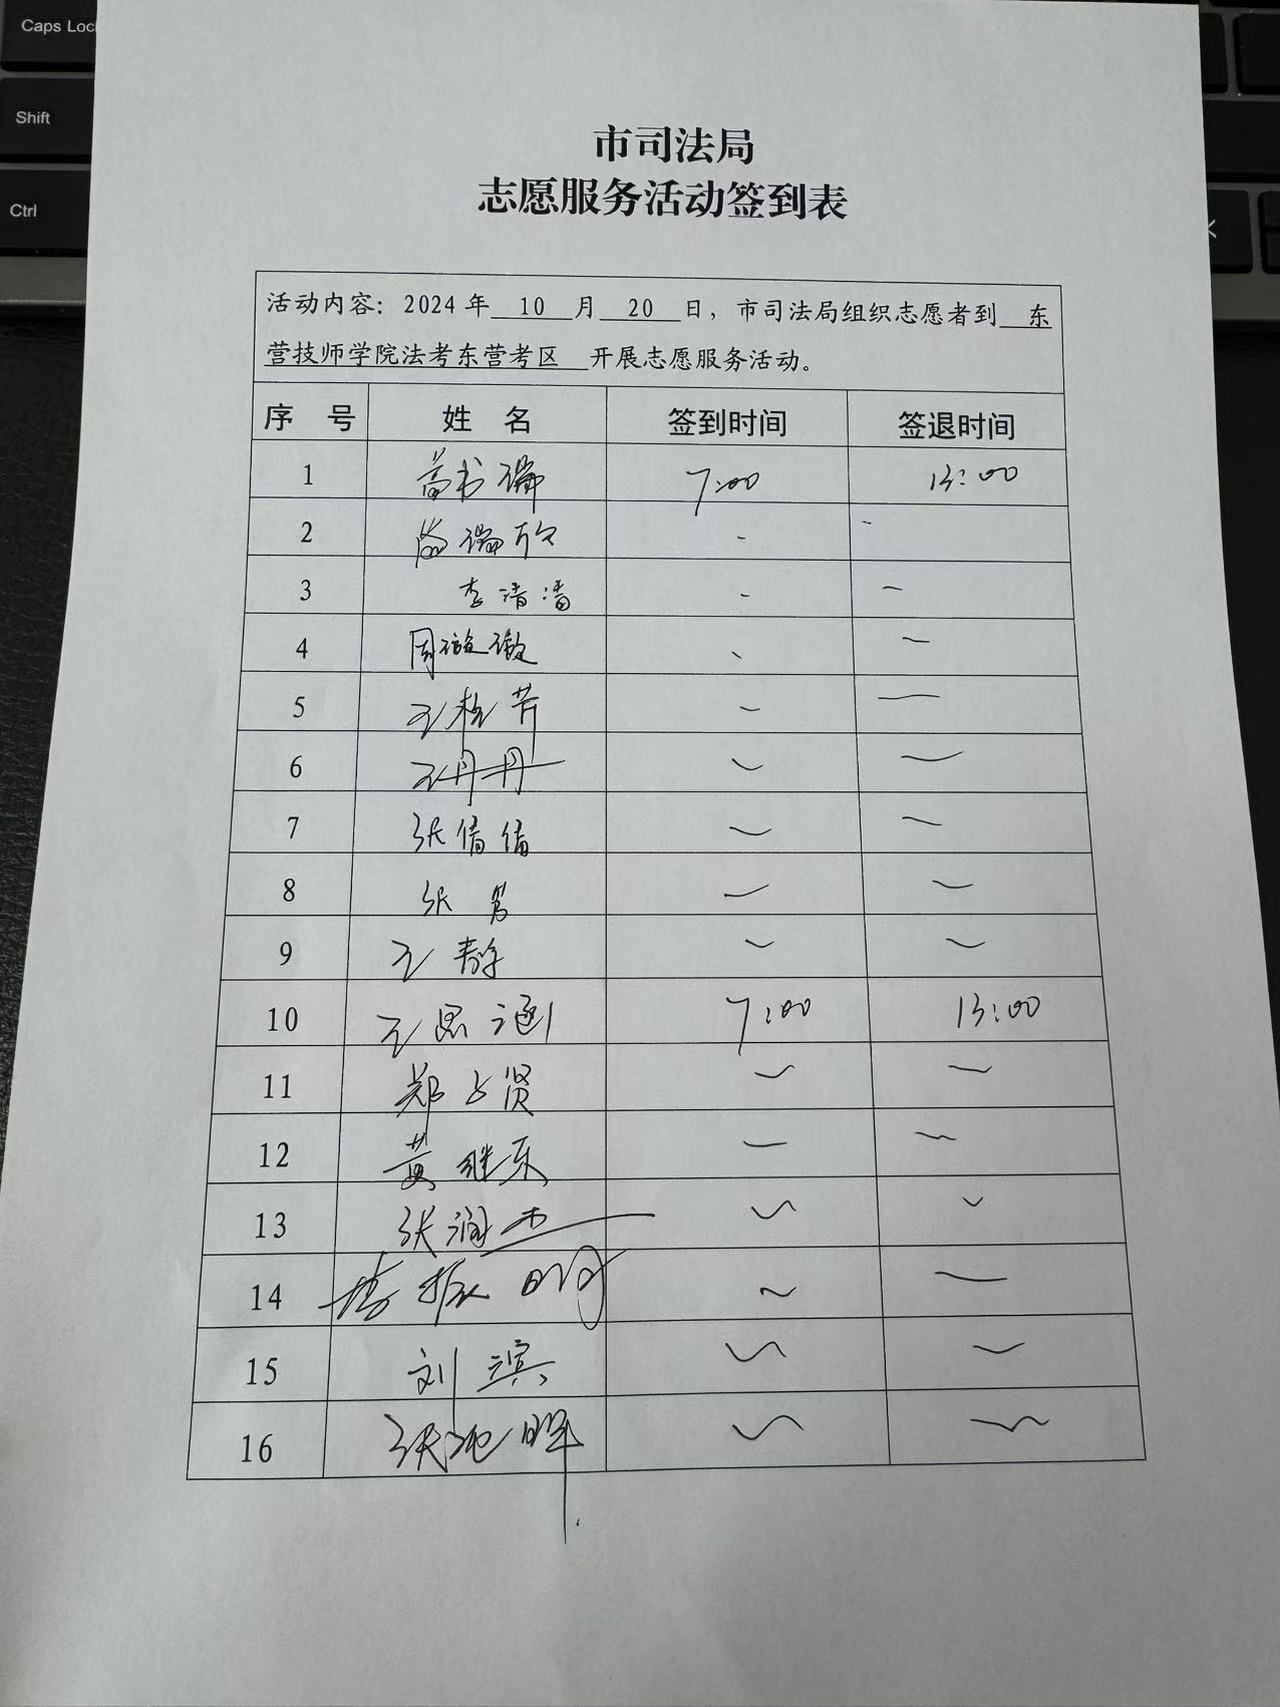 Caps Loc
Shift
Ctrl
市司法局
志愿服务活动签到表
活动内容：2024年 10 月 20 日，市司法局组织志愿者到 东
营技师学院法考东营考区 开展志愿服务活动。
序 号 姓 名 签到时间 签退时间
1 7:00 13:00
2 -  -
3 李清清 - —
4 周璇璇 - —
5 王桂芹 - —
6 王丹丹 - —
7 张倩倩 - —
8 张 - —
9 王静 - —
10 王思涵 7:00 13:00
11 郑占贤 - —
12 黄继东 — ~
13 张润杰 ~ -
14 李振明 ~ —
15 刘滨 ~ —
16 张旭晖 ~ ~